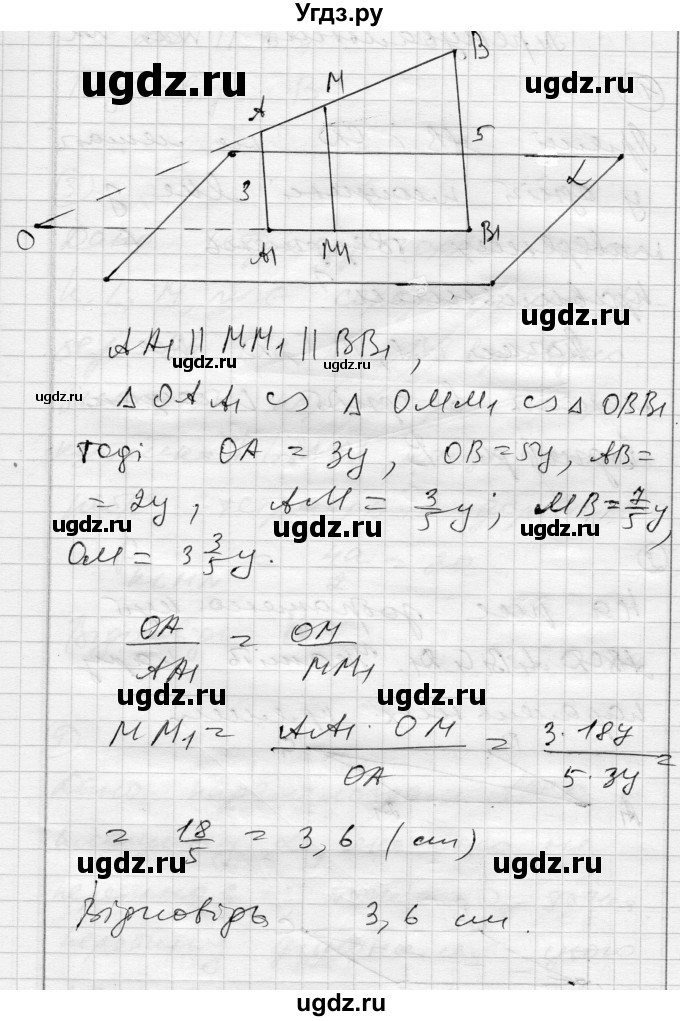 Угдз.ру
ugdz.ru
ugdz.ru
B
M
A
3
5
α
O
A1
M1
B1
ugdz.ru
AA1 || MM1 || BB1,
ugdz.ru
ugdz.ru
ugdz.ru
Δ OAA1 ∽ Δ OMM1 ∽ Δ OBB1
тоді OA = 3y, OB = 5y, AB =
= 2y, AM = 3/5 y; MB = 7/5 y,
ugdz.ru
ugdz.ru
ugdz.ru
OM = 3 3/5 y.
OA/AA1 = OM/MM1
ugdz.ru
ugdz.ru
MM1 = AA1 · OM / OA = 3 · 18y / 5 · 3y =
= 18/5 = 3,6 (см)
ugdz.ru
ugdz.ru
Відповідь 3,6 см.
ugdz.ru